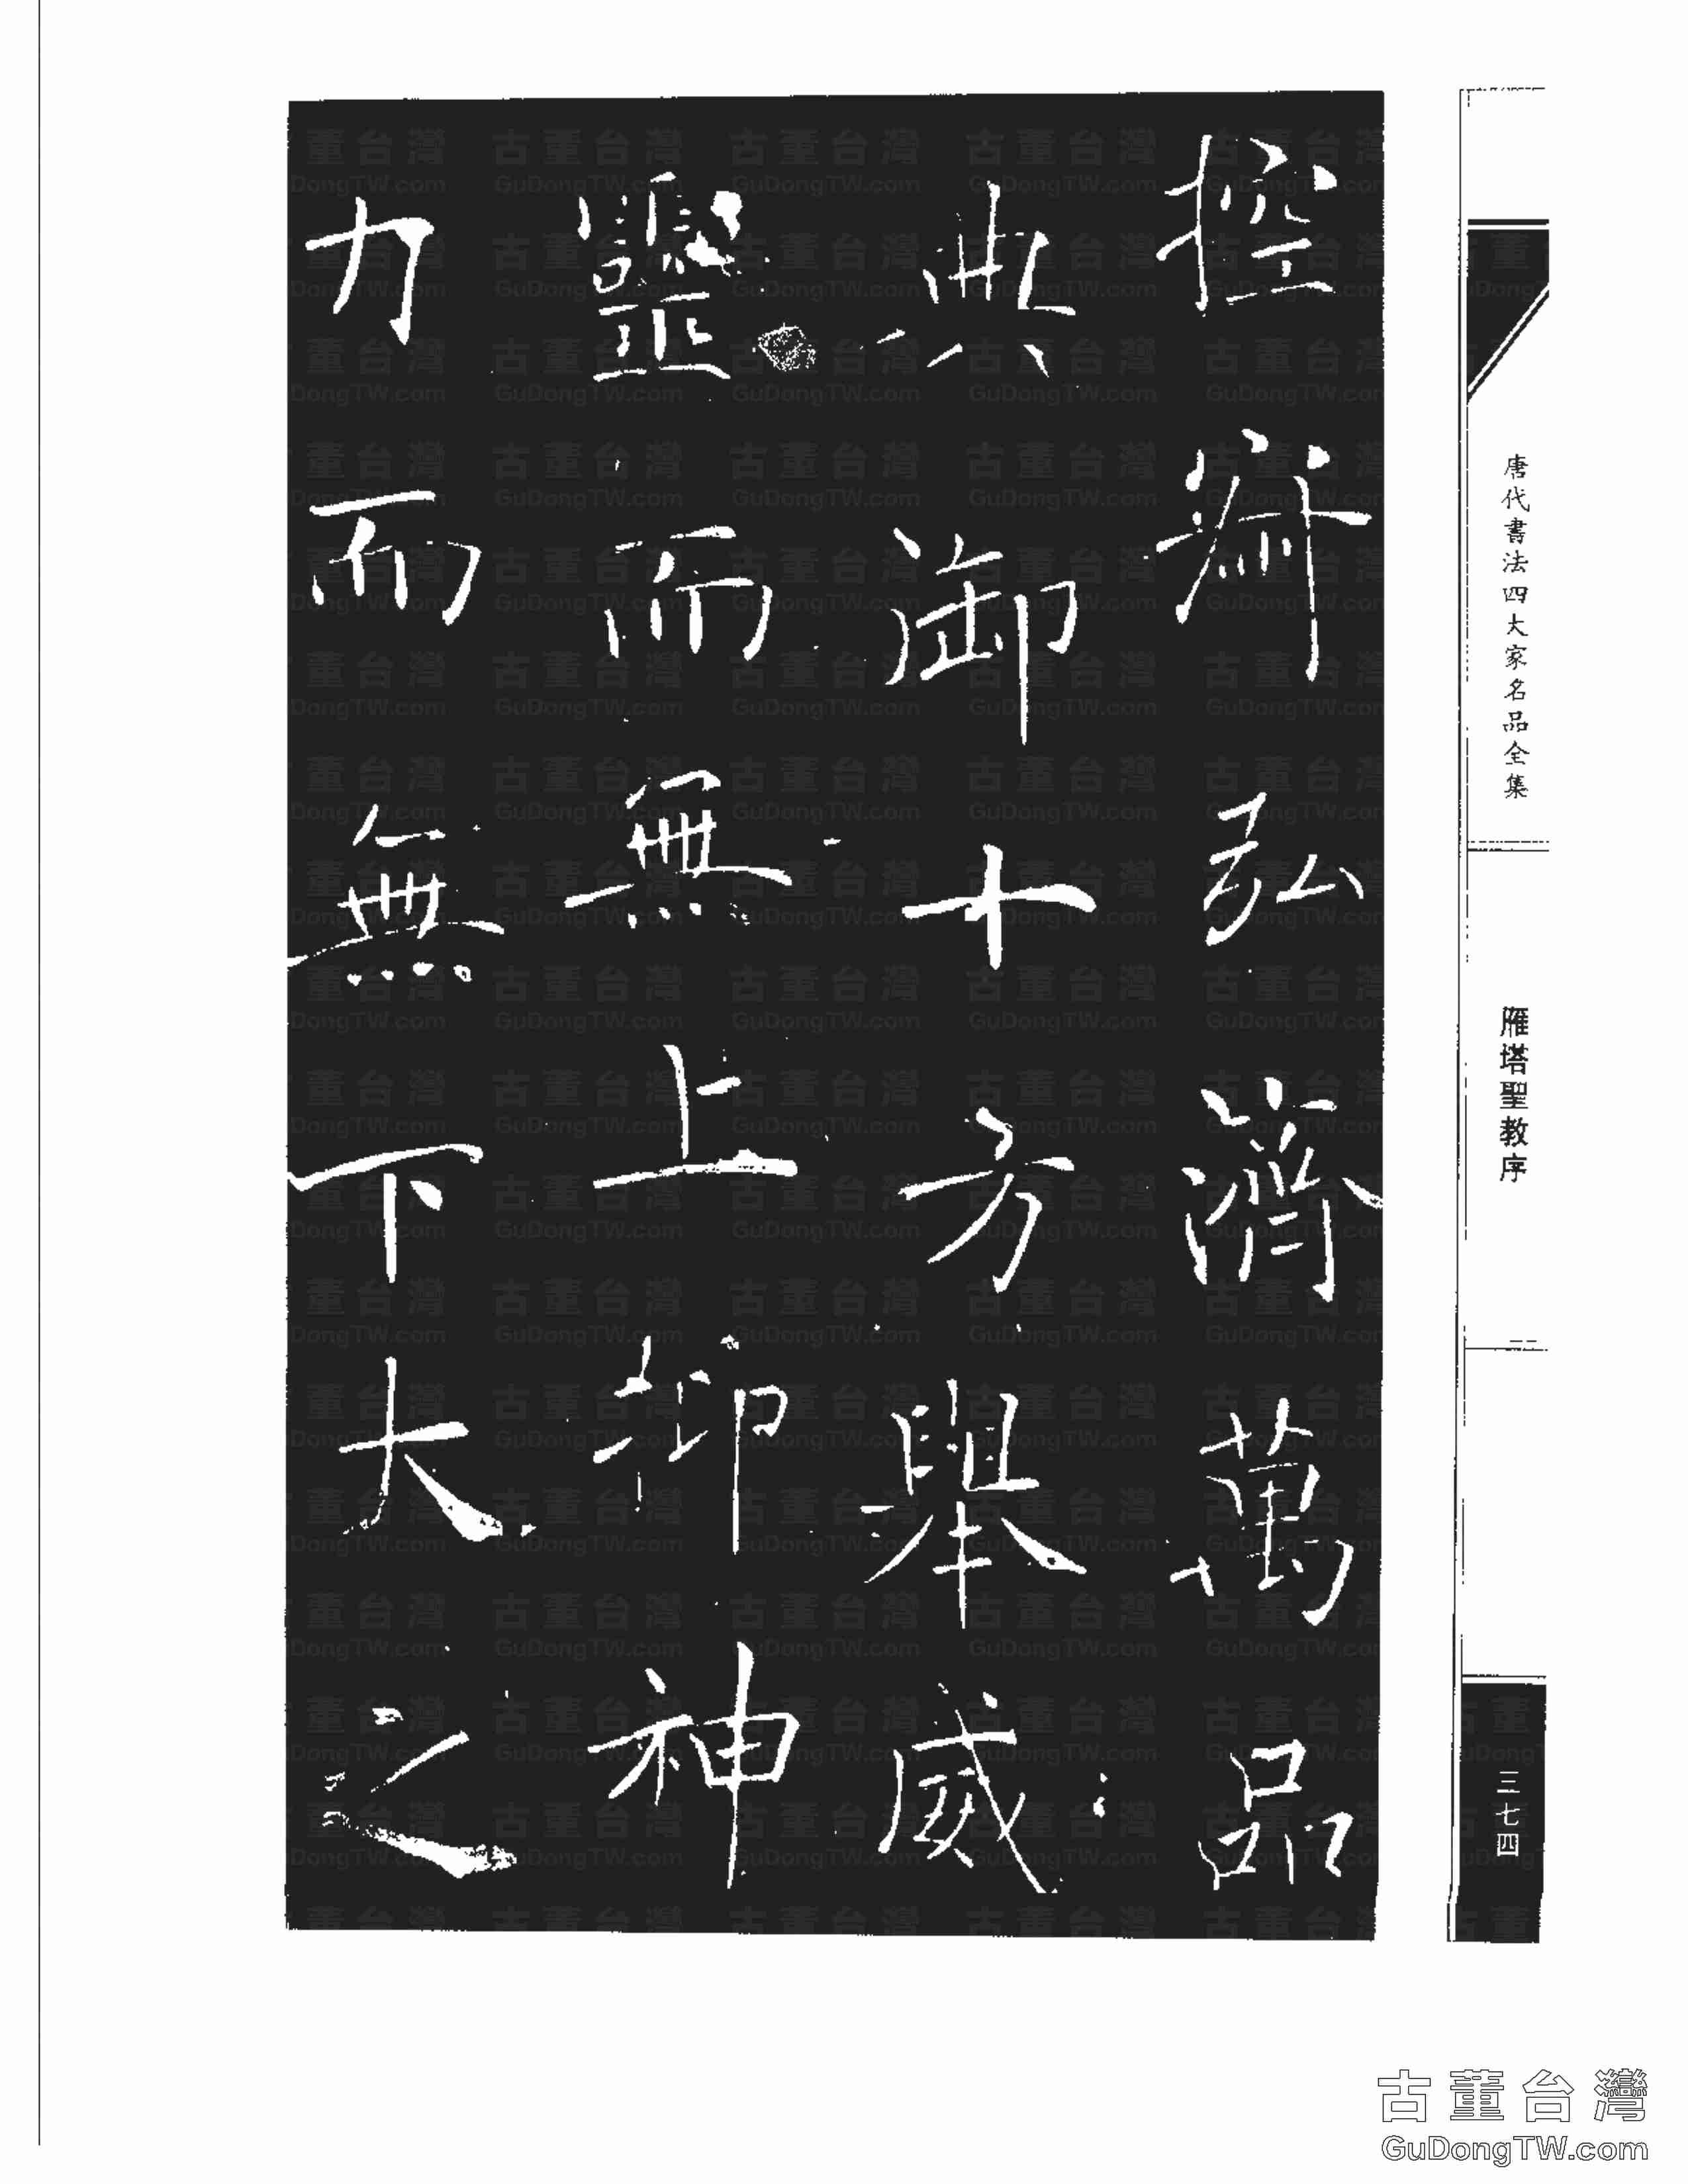 控寂弘濟萬品
典御十方舉威
靈而無上抑神
力而無下大之
唐代書法四大家名品全集
雁塔聖教序
三七四
古董台灣
GuDongTW.com